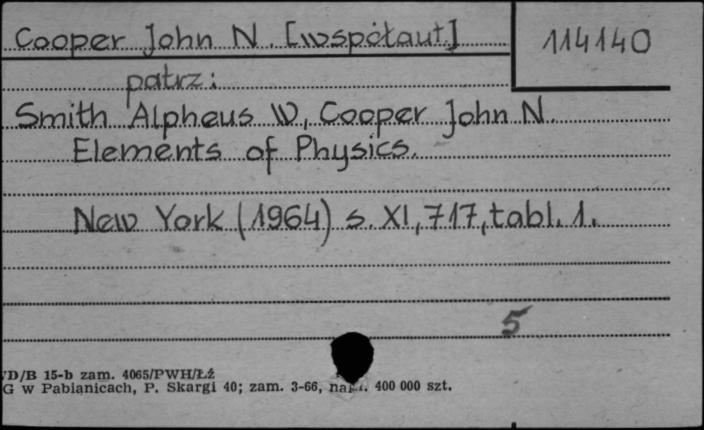 Cooper John N. [współaut.]
114140
patrz:
Smith Alpheus W., Cooper John N.
Elements of Physics.
New York (1964) s. XI, 717, tabl. 1.
5
/D/B 15-b zam. 4065/PWH/Łź
G w Pabianicach, P. Skargi 40; zam. 3-66, 400 000 szt.